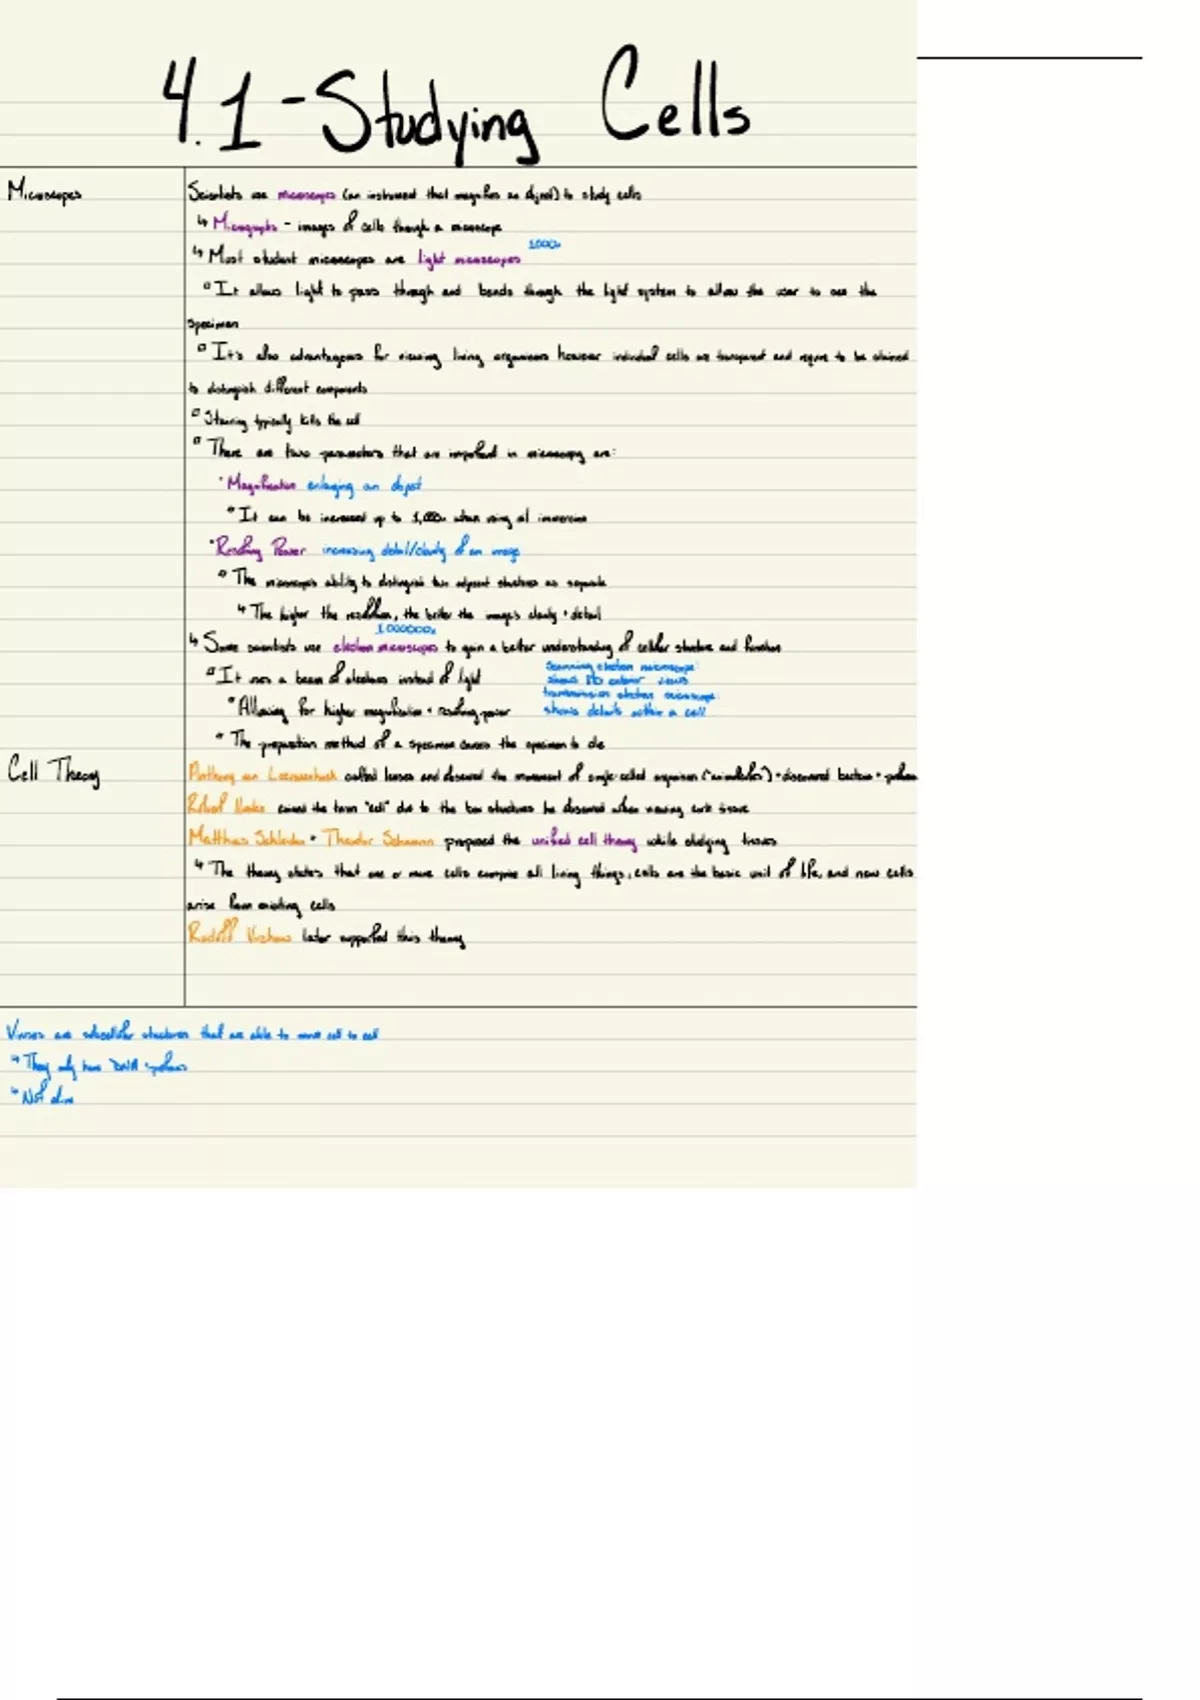 4.1-Studying Cells
Microscopes
Scientists use microscopes (an instrument that magnifies an object) to study cells
↳ Micrographs - images of cells though a microscope
1000x
↳ Most student microscopes are light microscopes
It allows light to pass through and bends through the light system to allow the user to see the
specimen
It's also advantageous for viewing living organisms however individual cells are transparent and require to be stained
to distinguish different components
Staining typically kills the cell
There are two parameters that are important in microscopy are:
Magnification enlarging an object
It can be increased up to 1,000x when using oil immersion
Resolving Power increasing detail/clarity of an image
The microscope's ability to distinguish two adjacent structures as separate
↳ The higher the resolution, the better the image's clarity + detail
1000000x
↳ Some scientists use electron microscopes to gain a better understanding of cellular structure and function
It uses a beam of electrons instead of light
scanning electron microscope:
shows exterior views
transmission electron microscope:
shows details within a cell
Allowing for higher magnification + resolving power
The preparation method of a specimen causes the specimen to die
Cell Theory
Anthony van Leeuwenhoek crafted lenses and observed the movement of single-celled organism ("animalcules") + discovered bacteria +
Robert Hooke coined the term "cell" due to the box structures he observed when viewing cork tissue
Matthias Schleiden + Theodor Schwann proposed the unified cell theory while studying tissues
↳ The theory states that one or more cells comprise all living things, cells are the basic unit of life, and new cells
arise from existing cells
Rudolf Virchow later supported this theory
Viruses are subcellular structures that are able to move cell to cell
↳ They only have DNA
↳ Not alive